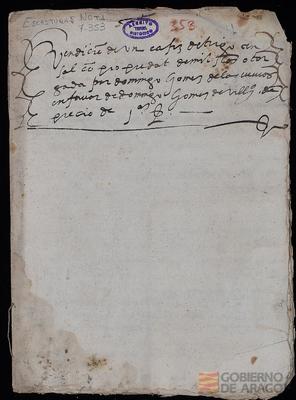 ESCRITURAS NOTA
P.353
253
Vendicion de un cafis de trigo cen
sal con propiedat de mil sos otor
gada por domingo Gomes de las cuevas
en favor de domingo Gomes de
precio de
GOBIERNO
DE ARAGON